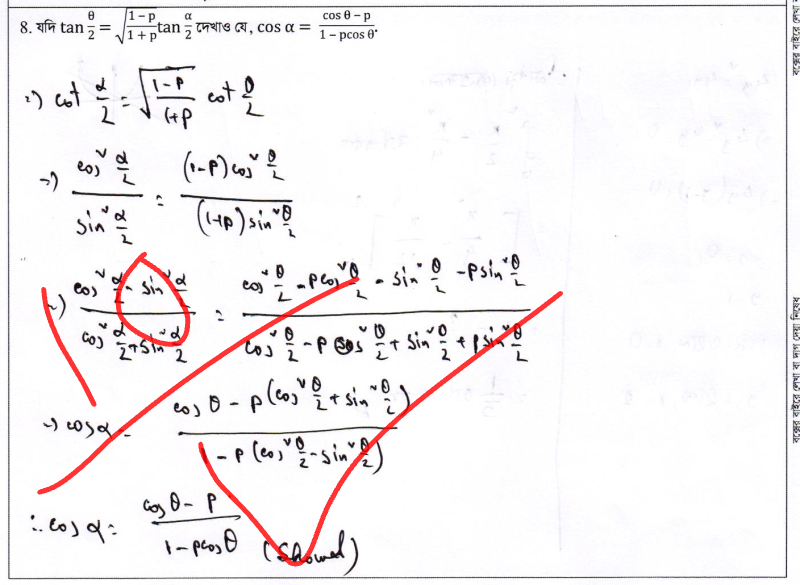 8. যদি tan θ/2 = √((1 − p)/(1 + p)) tan α/2 দেখাও যে, cos α = (cos θ − p)/(1 − pcos θ).
⇒) cot α/2 = √((1-P)/(1+P)) cot θ/2
⇒) cos² α/2 / sin² α/2 = (1-P) cos² θ/2 / (1+P) sin² θ/2
⇒) (cos² α/2 - sin² α/2) / (cos² α/2 + sin² α/2) = (cos² θ/2 - P cos² θ/2 - sin² θ/2 - P sin² θ/2) / (cos² θ/2 - P cos² θ/2 + sin² θ/2 + P sin² θ/2)
⇒) cos α = (cos θ - P (cos² θ/2 + sin² θ/2)) / (1 - P (cos² θ/2 - sin² θ/2))
∴ cos α = (cos θ - P) / (1 - P cos θ) (Showed)